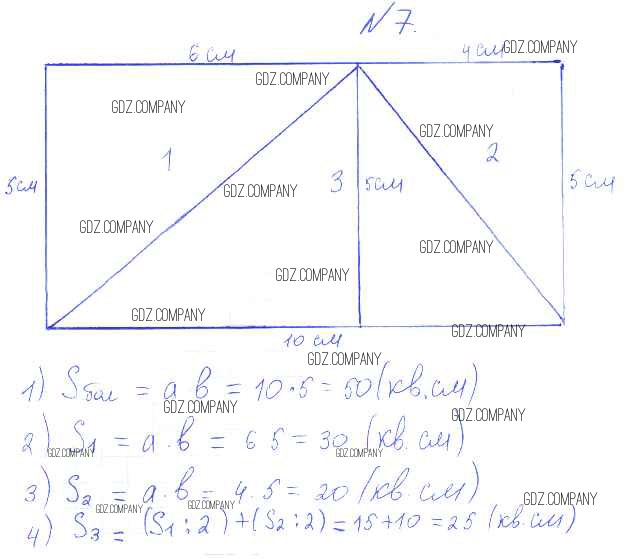 N 7.
6 см
4 см GDZ.COMPANY
GDZ.COMPANY
GDZ.COMPANY
GDZ.COMPANY
1
2
5 см
GDZ.COMPANY
3
5 см
5 см
GDZ.COMPANY
GDZ.COMPANY
GDZ.COMPANY
GDZ.COMPANY
GDZ.COMPANY
10 см
GDZ.COMPANY
1) Sбол = а в = 10·5 = 50 (кв.см)
GDZ.COMPANY
GDZ.COMPANY
2) S1 = а·в = 6 5 = 30 (кв.см)
GDZ.COMPANY
GDZ.COMPANY
3) S2 = а·в = 4·5 = 20 (кв.см)
GDZ.COMPANY
GDZ.COMPANY
GDZ.COMPANY
4) S3 = (S1:2)+(S2:2)=15+10=25 (кв.см)